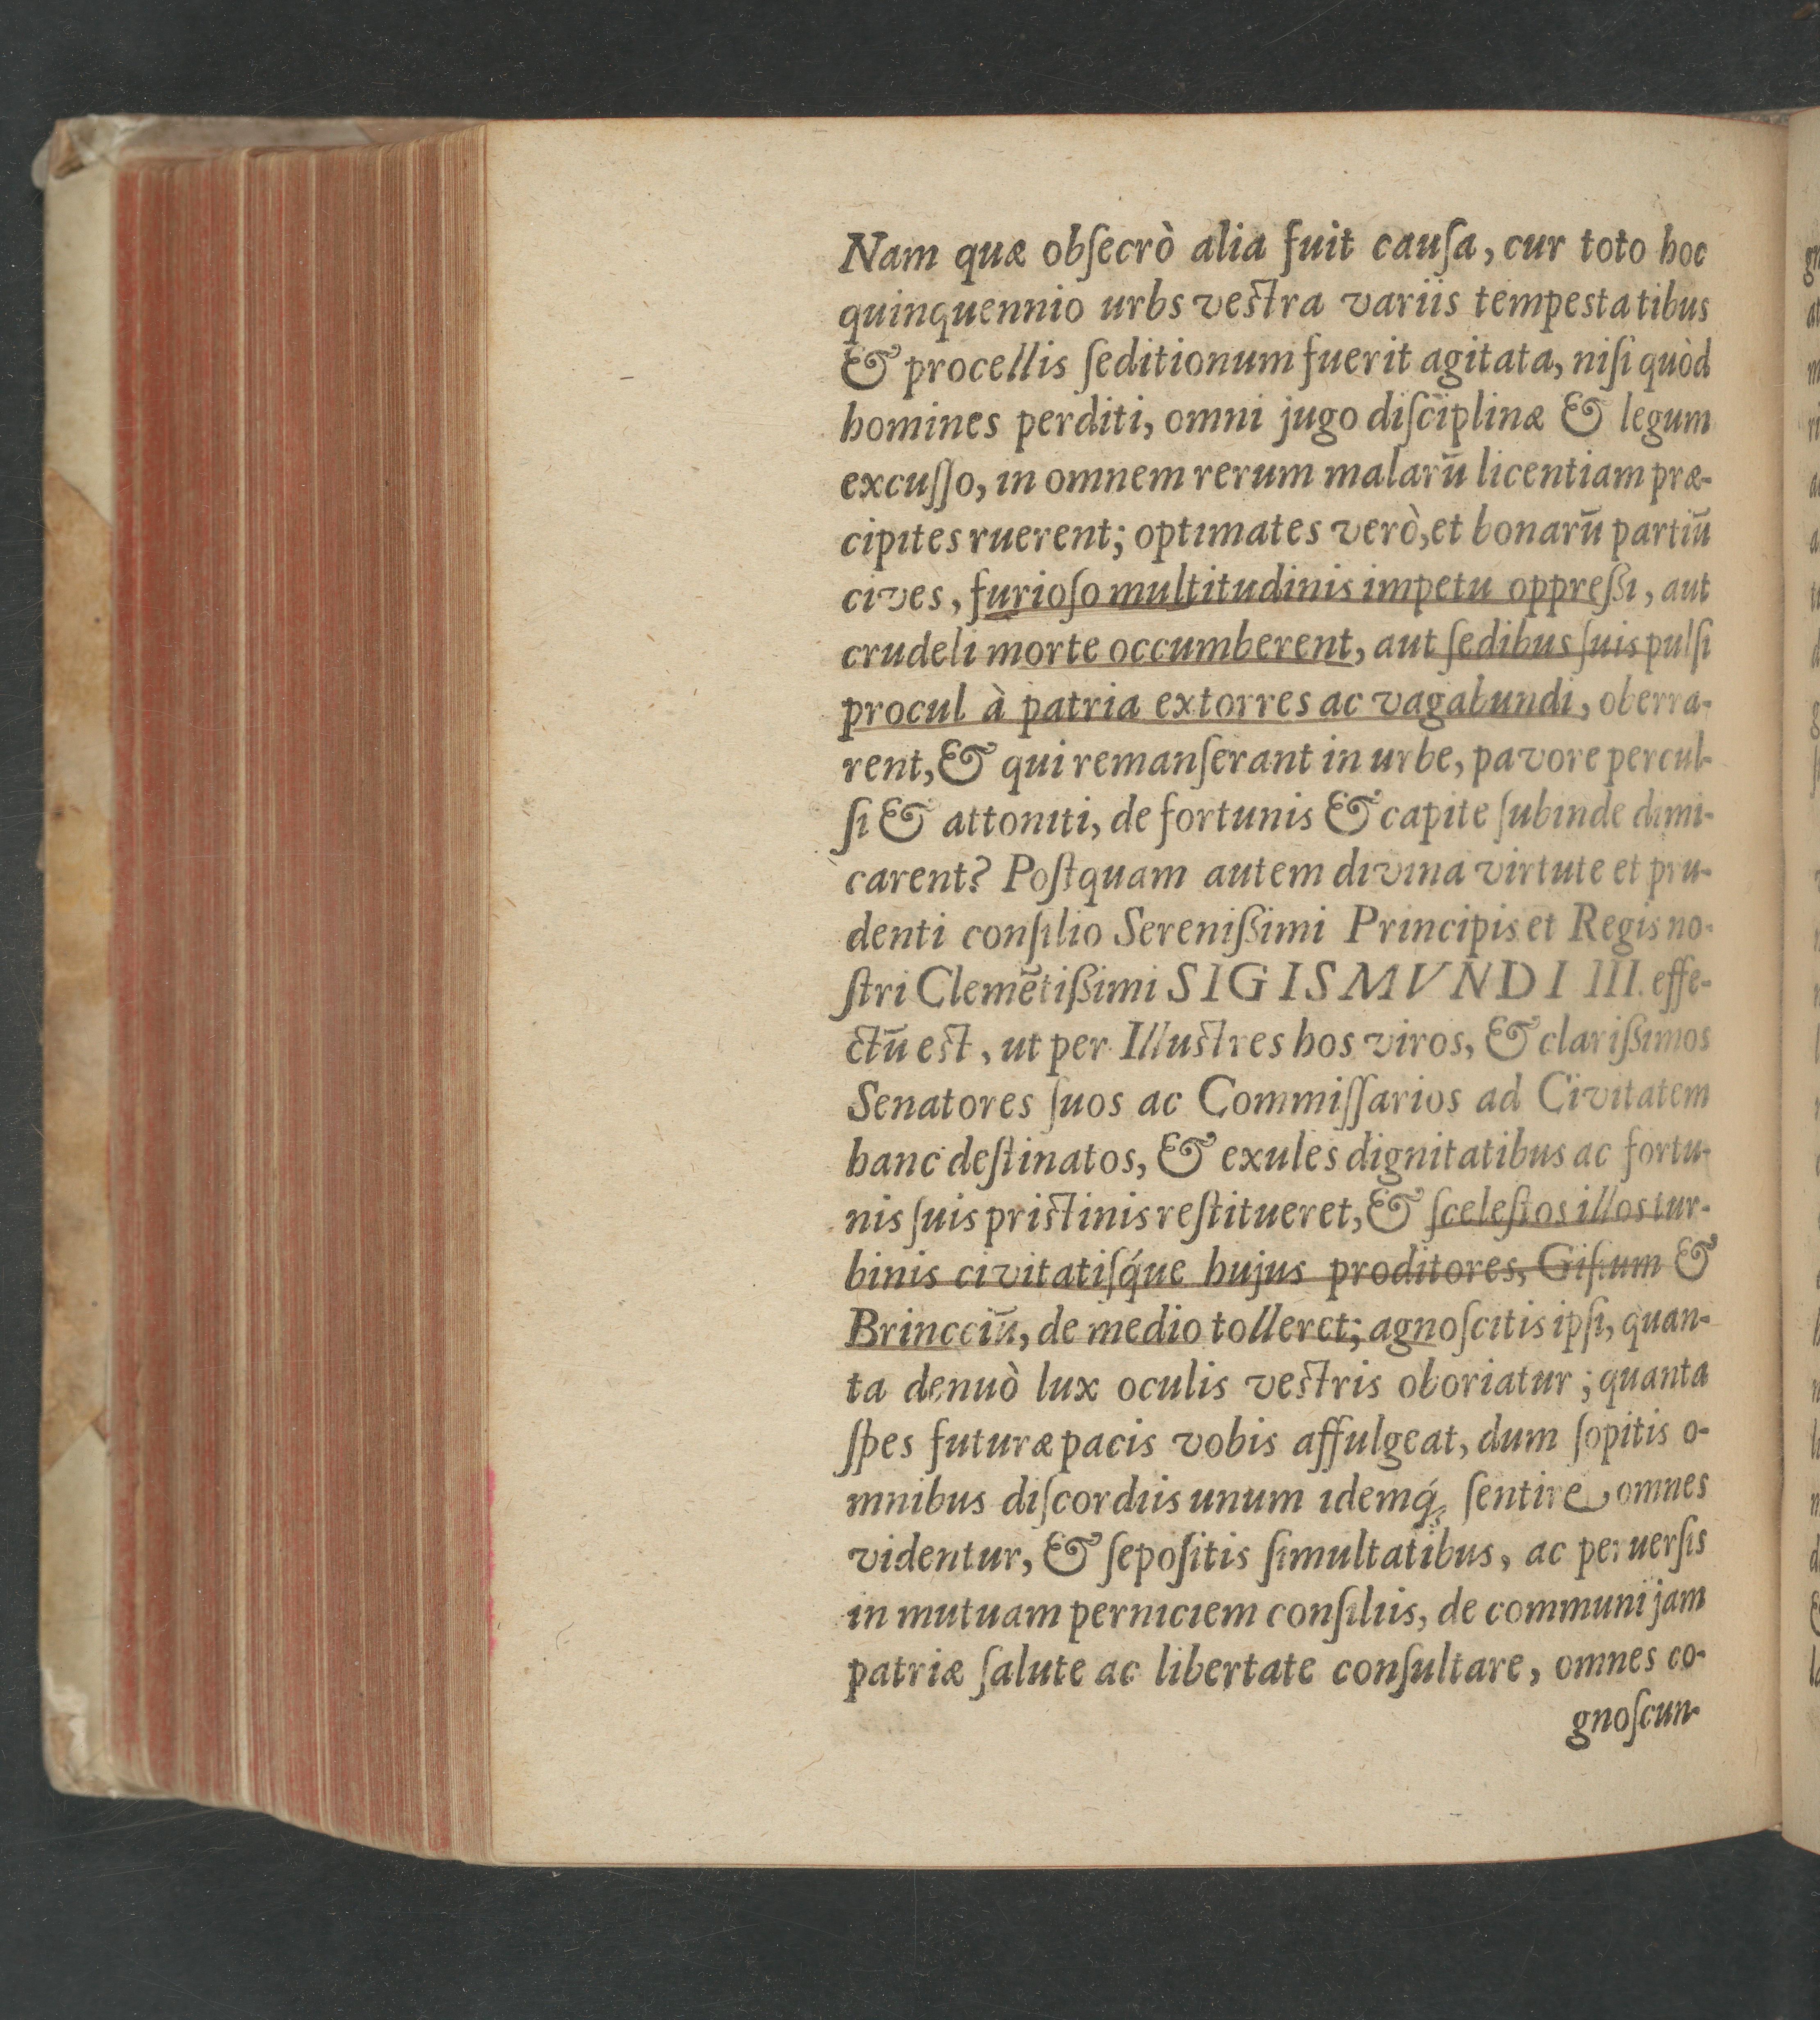 Nam quæ obſecrò alia fuit cauſa, cur toto hoc
quinquennio urbs veſtra variis tempestatibus
& procellis ſeditionum fuerit agitata, niſi quòd
homines perditi, omni jugo diſciplinæ & legum
excuſſo, in omnem rerum malarū licentiam præ-
cipites ruerent; optimates verò, et bonarū partiū
cives, furioſo multitudinis impetu oppreßi, aut
crudeli morte occumberent, aut ſedibus ſuis pulſi
procul à patria extorres ac vagabundi, oberra-
rent, & qui remanſerant in urbe, pavore percul-
ſi & attoniti, de fortunis & capite ſubinde dimi-
carent? Poſtquam autem divina virtute et pru-
denti conſilio Sereniſsimi Principis et Regis no-
ſtri Clemētißimi SIGISMVNDI III. effe-
ctū eſt, ut per Illuſtres hos viros, & clarißimos
Senatores ſuos ac Commiſſarios ad Civitatem
hanc deſtinatos, & exules dignitatibus ac fortu-
nis ſuis priſtinis reſtitueret, & ſceleſtos illos tur-
binis civitatiſq́ue hujus proditores, Giſium &
Brincciū, de medio tolleret; agnoſcitis ipſi, quan-
ta denuò lux oculis veſtris oboriatur; quanta
ſpes futuræ pacis vobis affulgeat, dum ſopitis o-
mnibus diſcordiis unum idemq́; ſentire omnes
videntur, & ſepoſitis ſimultatibus, ac peruerſis
in mutuam perniciem conſiliis, de communi jam
patriæ ſalute ac libertate conſultare, omnes co-
gnoſcun-